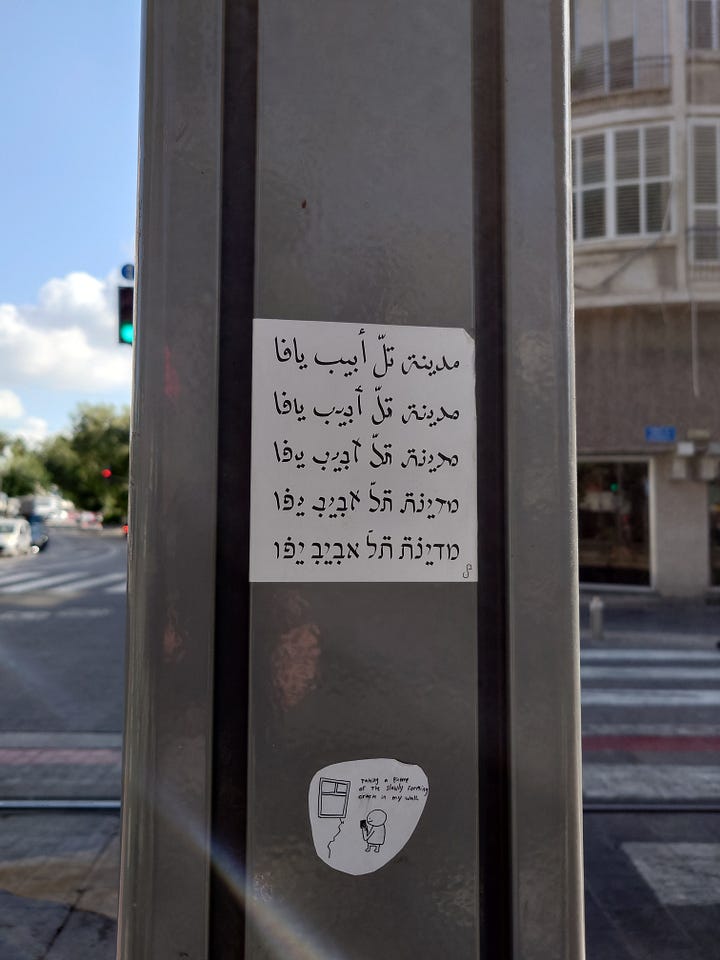 مدينة تلّ أبيب يافا
مدينة تلّ أبيب يافا
מדינת תל אביב יפו
מדינת תל אביב יפו
Taking a Picture
of The slowly Forming
crack in my wall